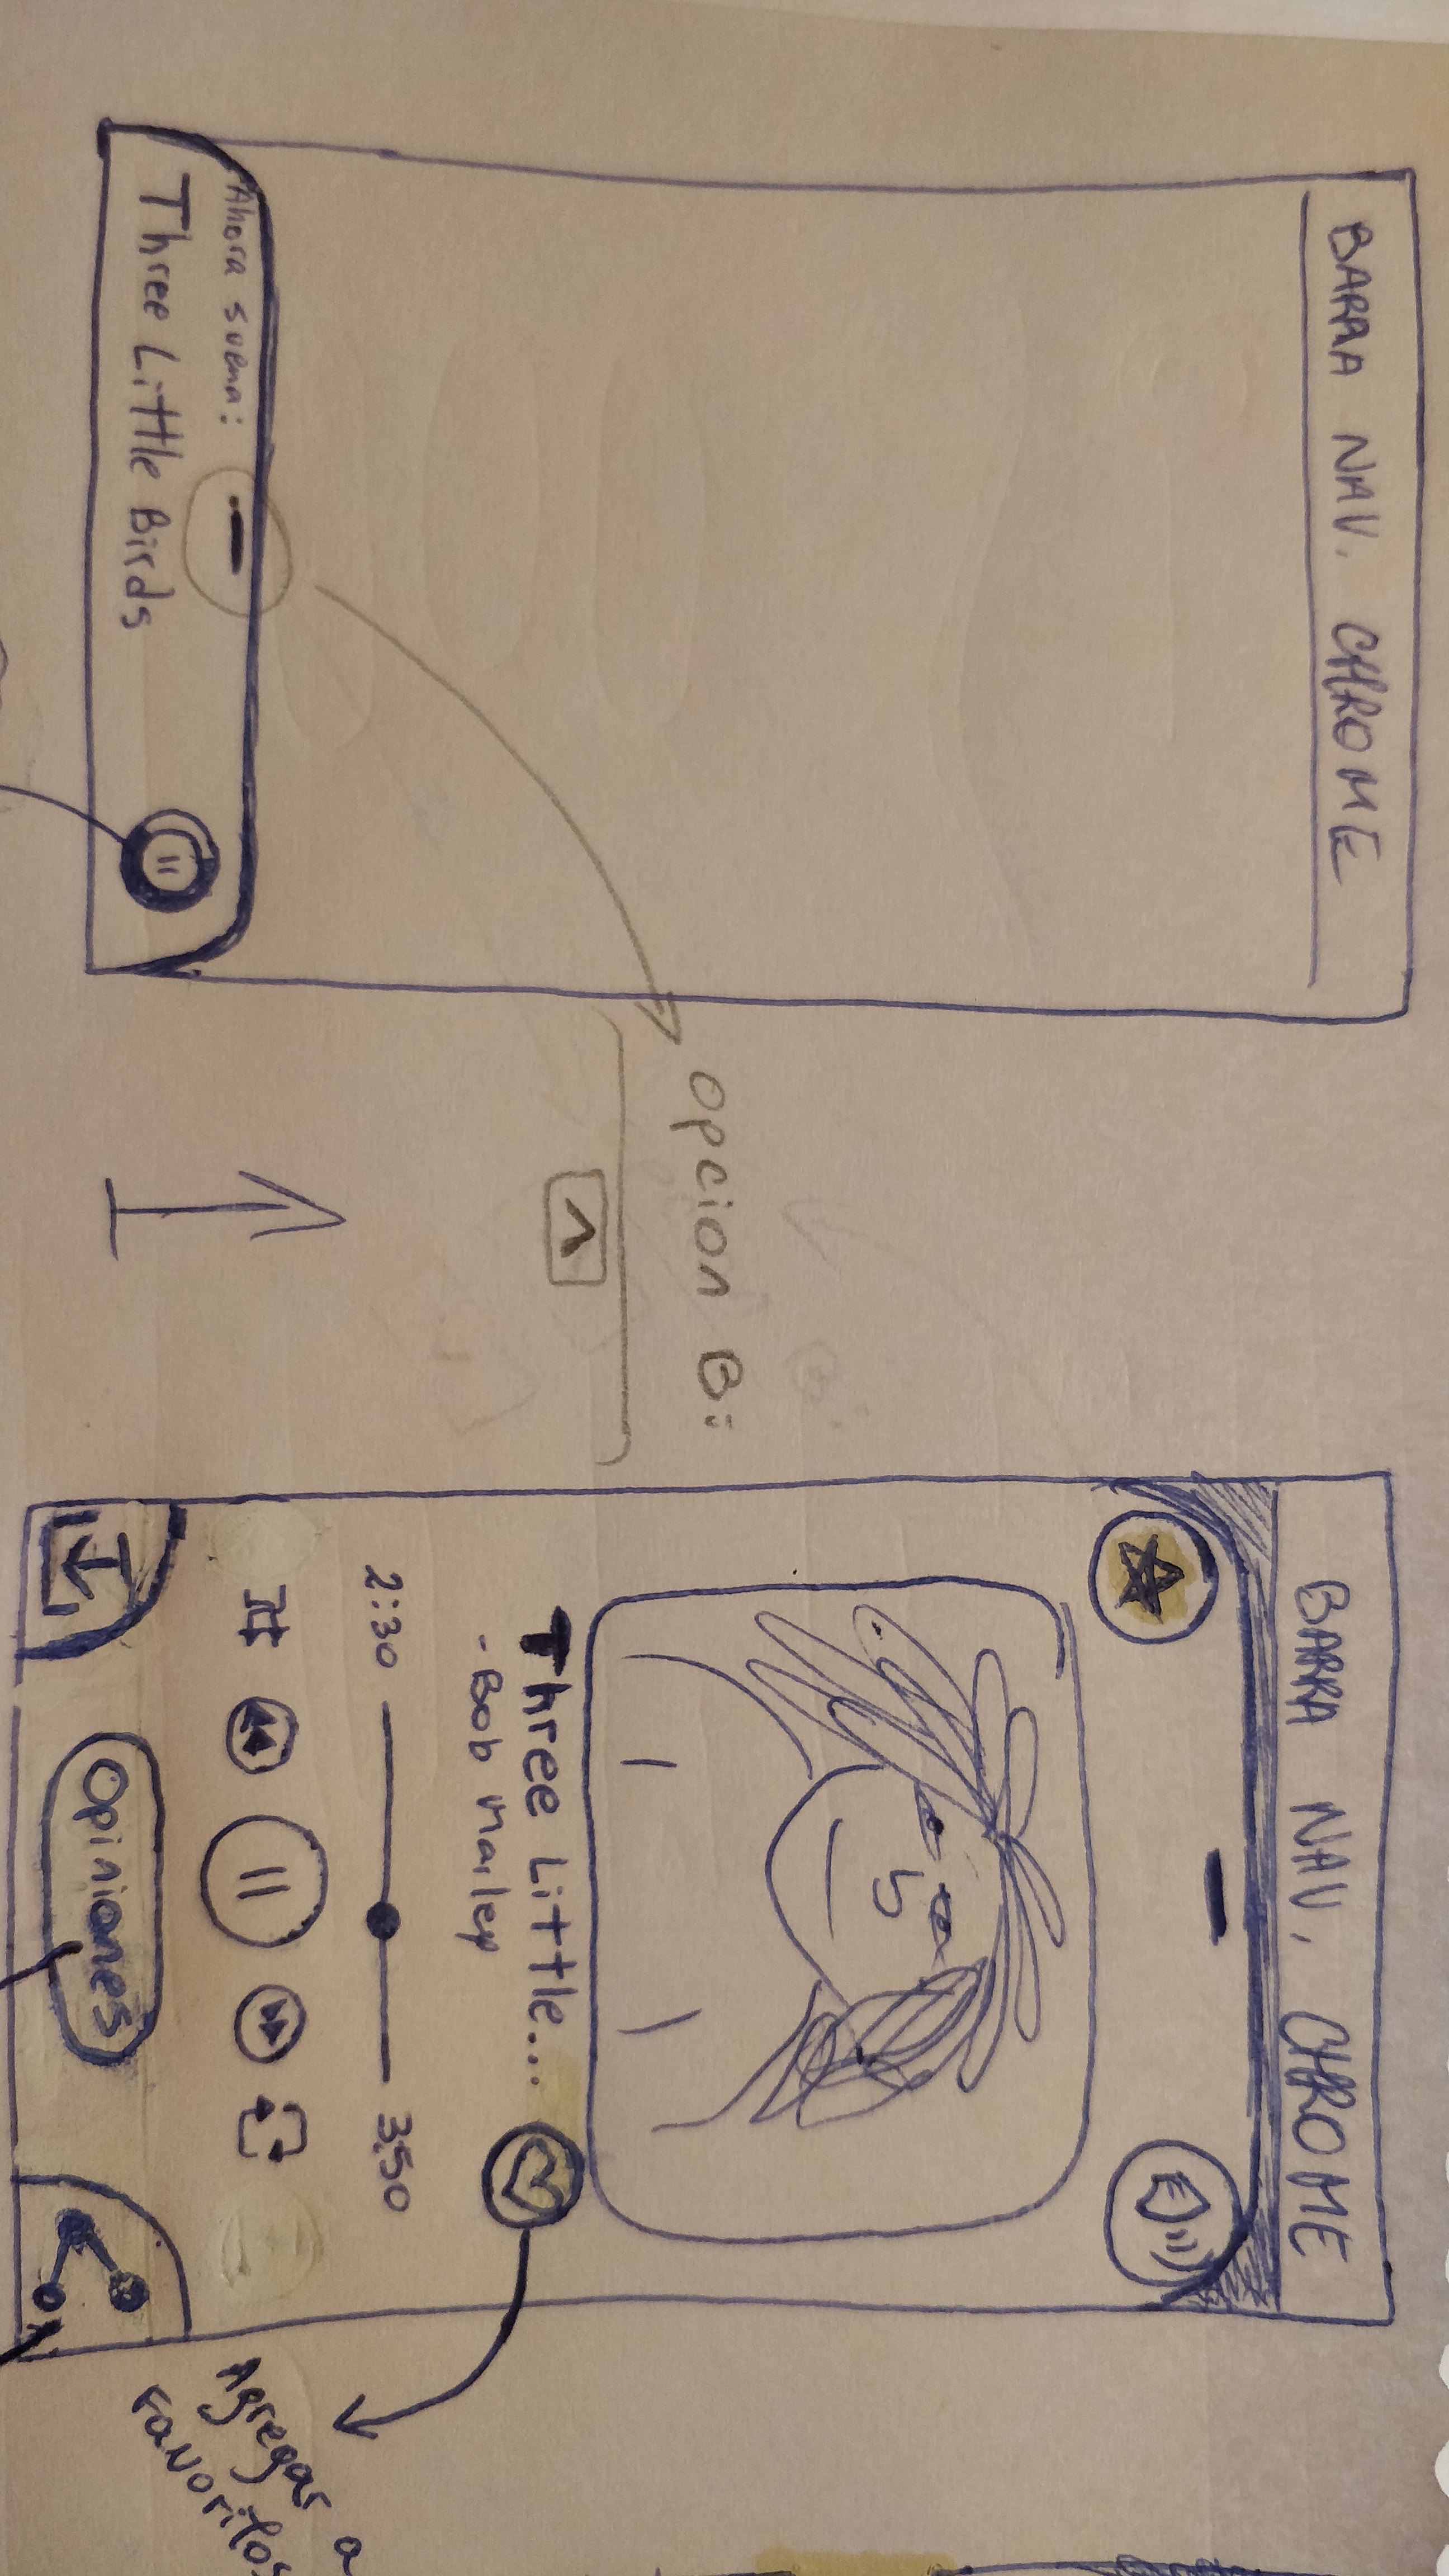 BARRA NAV. CHROME
Ahora suena:
Three Little Birds
opcion B:
BARRA NAV. CHROME
Three Little...
- Bob Marley
2:30
3:50
Opiniones
Agregar a
Favoritos